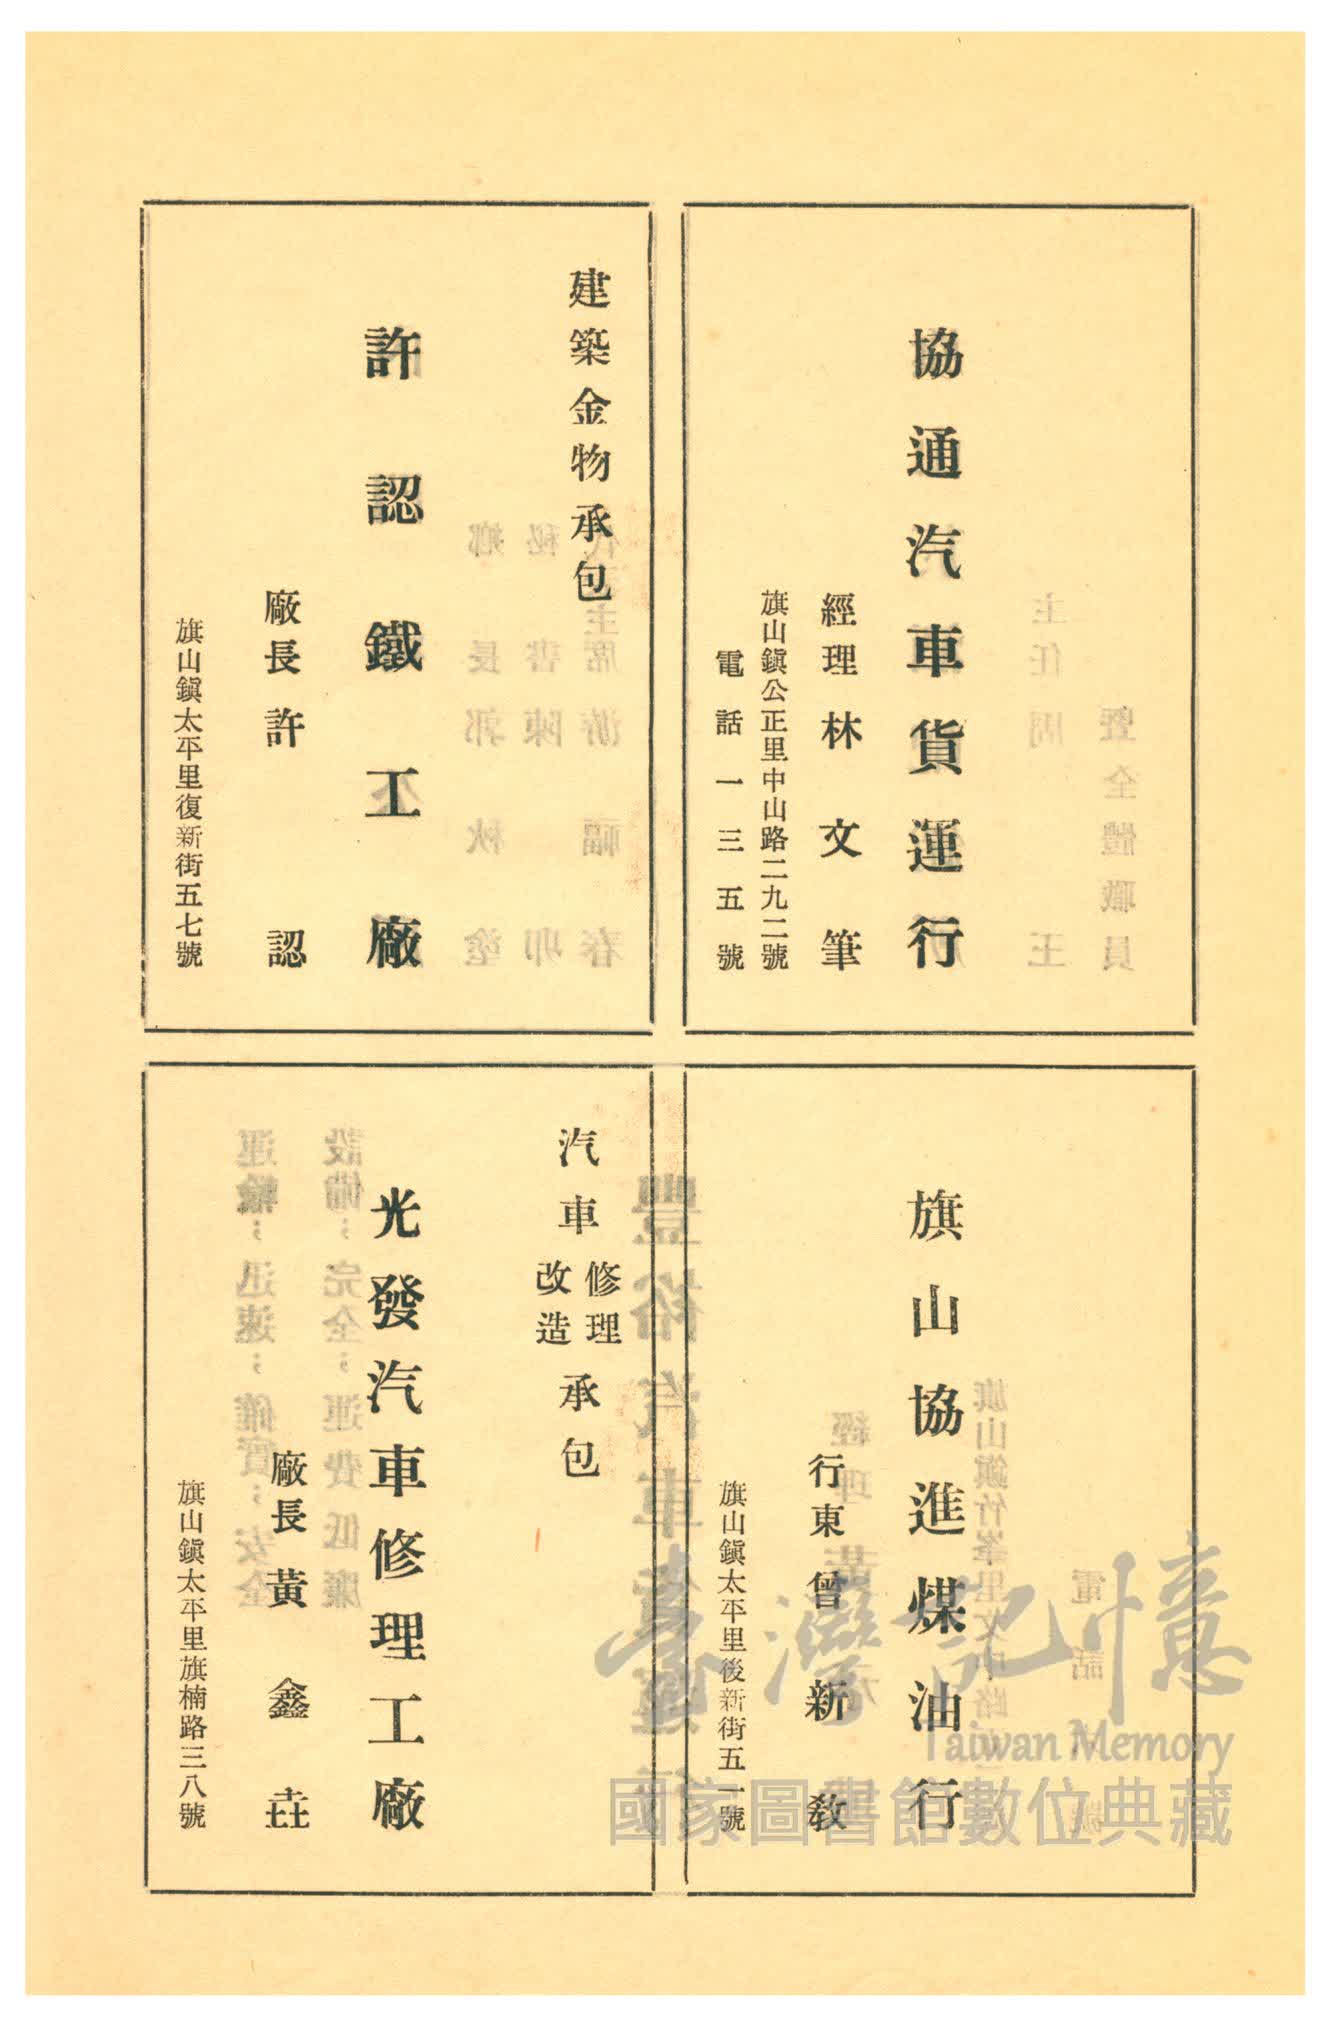 協通汽車貨運行
經理林文筆
旗山鎮公正里中山路二九二號
電話一三五號
建築金物承包
許認鐵工廠
廠長許認
旗山鎮太平里復新街五七號
旗山協進煤油行
行東曾新教
旗山鎮太平里後新街五一號
汽車修理改造承包
光發汽車修理工廠
廠長黃鑫垚
旗山鎮太平里旗楠路三八號
臺灣記憶
Taiwan Memory
國家圖書館數位典藏